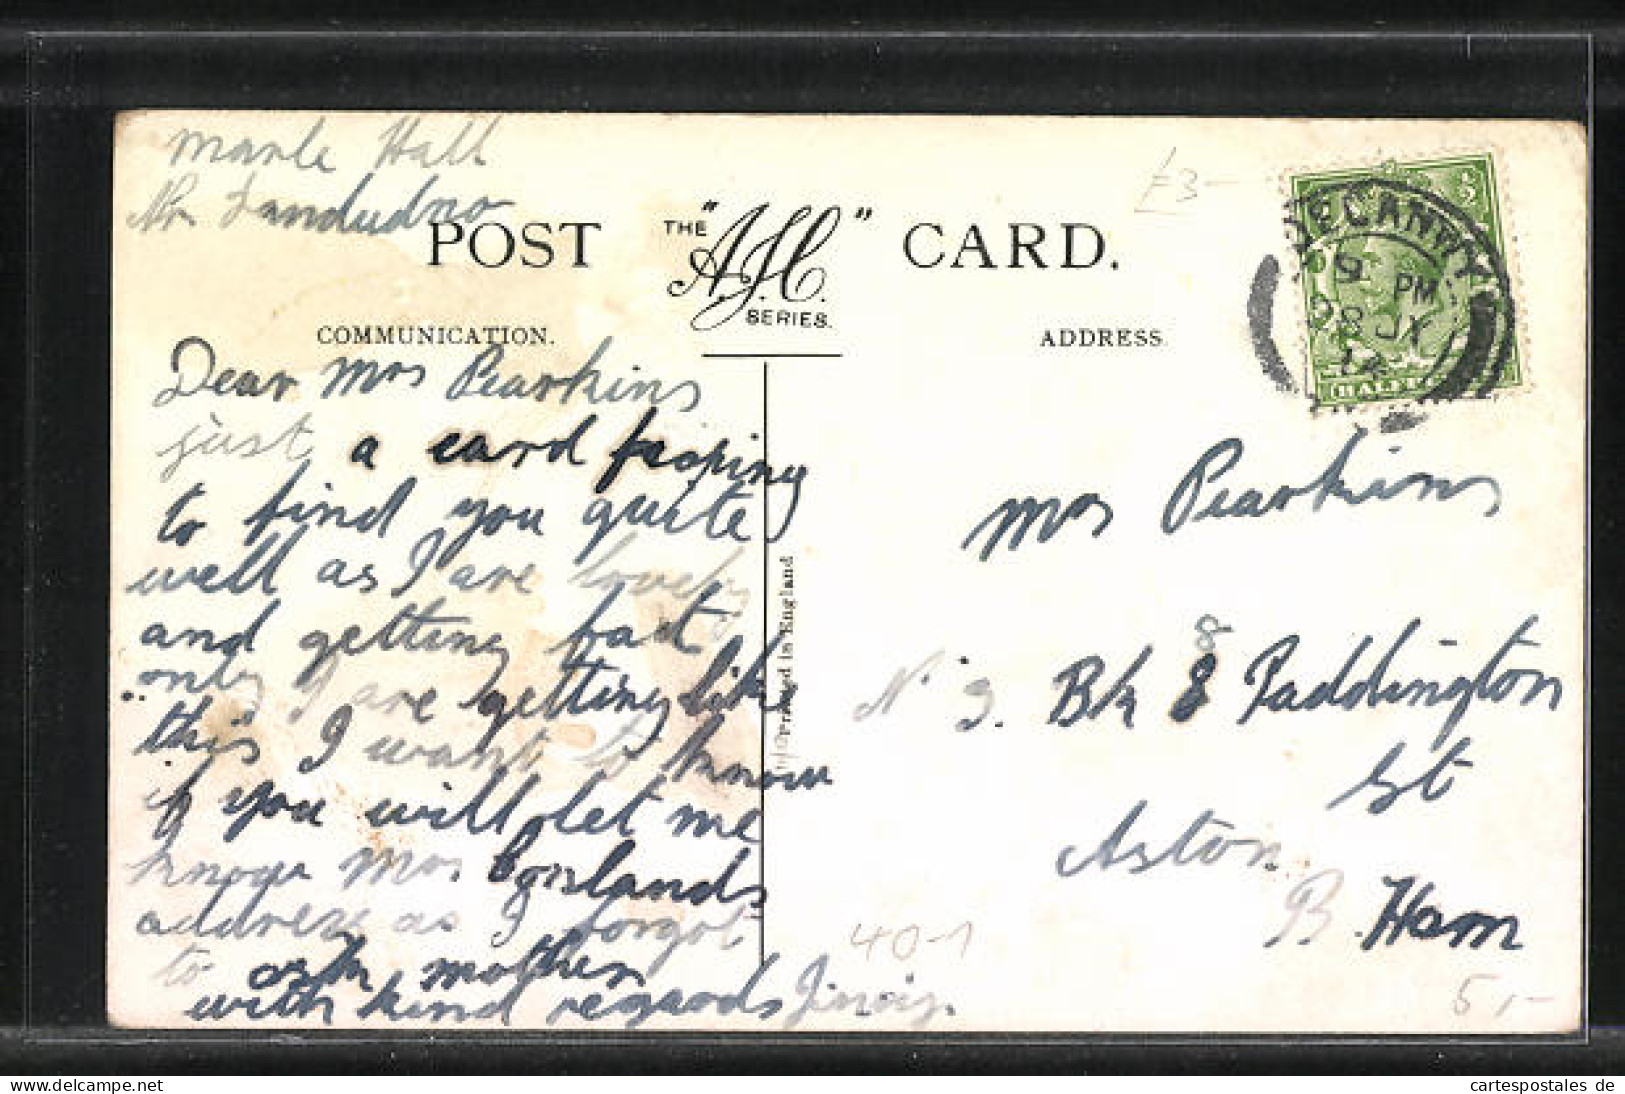 Marle Hall
Nr Landudno
POST THE "A.J.C." SERIES. CARD.
COMMUNICATION.
ADDRESS
DEGANWY
9 PM
28 JY
14
HALFP
Dear Mrs Pearkins
just a card hoping
to find you quite
well as I are lovely
and getting fat
only I are getting like
this I want to know
if you will let me
know Mrs Conlands
address as I forgot
to ask mother
with kind regards
Printed in England
Mrs Pearkins
N. 3. Bk 8 8 Paddington
St
Aston
B. Ham
£3-
40-1
5,-
Copyright delcampe.net
cartespostales de